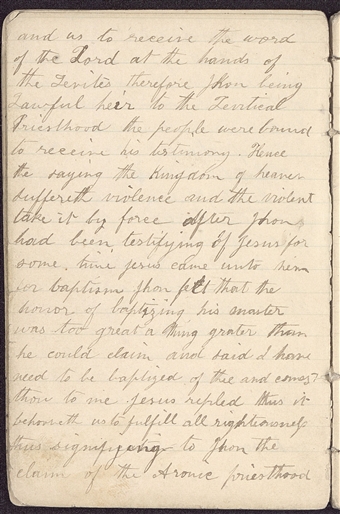 and us to receive the word
of the Lord at the hands of
the Levites therefore Jhon being
Lawful heir to the Levitical
Priesthood the people were bound
to receive his testimony. Hence
the saying the Kingdom of heaven
suffereth violence and the violent
take it by force after Jhon
had been testifying of Jesus for
some time jesus came unto him
for baptism Jhon felt that the
honor of baptizing his master
was too great a thing grater than
he could claim and said I have
need to be baptized of thee and comest
thou to me Jesus repled thus it
behometh us to fulfill all rightiousness
thus signifying to Jhon the
claim of the Aronic priesthood